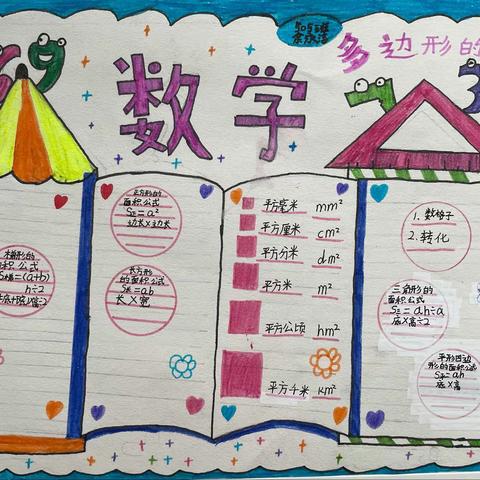 505班
数学
多边形的
69
7
3
梯形的
面积公式
S梯=(a+b)
h÷2
正方形的
面积公式
S正=a²
边长×边长
长方形
的面积公式
S长=ab
长×宽
平方毫米 mm²
平方厘米 cm²
平方分米 dm²
平方米 m²
平方公顷 hm²
平方千米 km²
1. 数格子
2. 转化
三角形的
面积公式
S三=ah÷2
底×高÷2
平行四边
形的面积公式
S平=ah
底×高